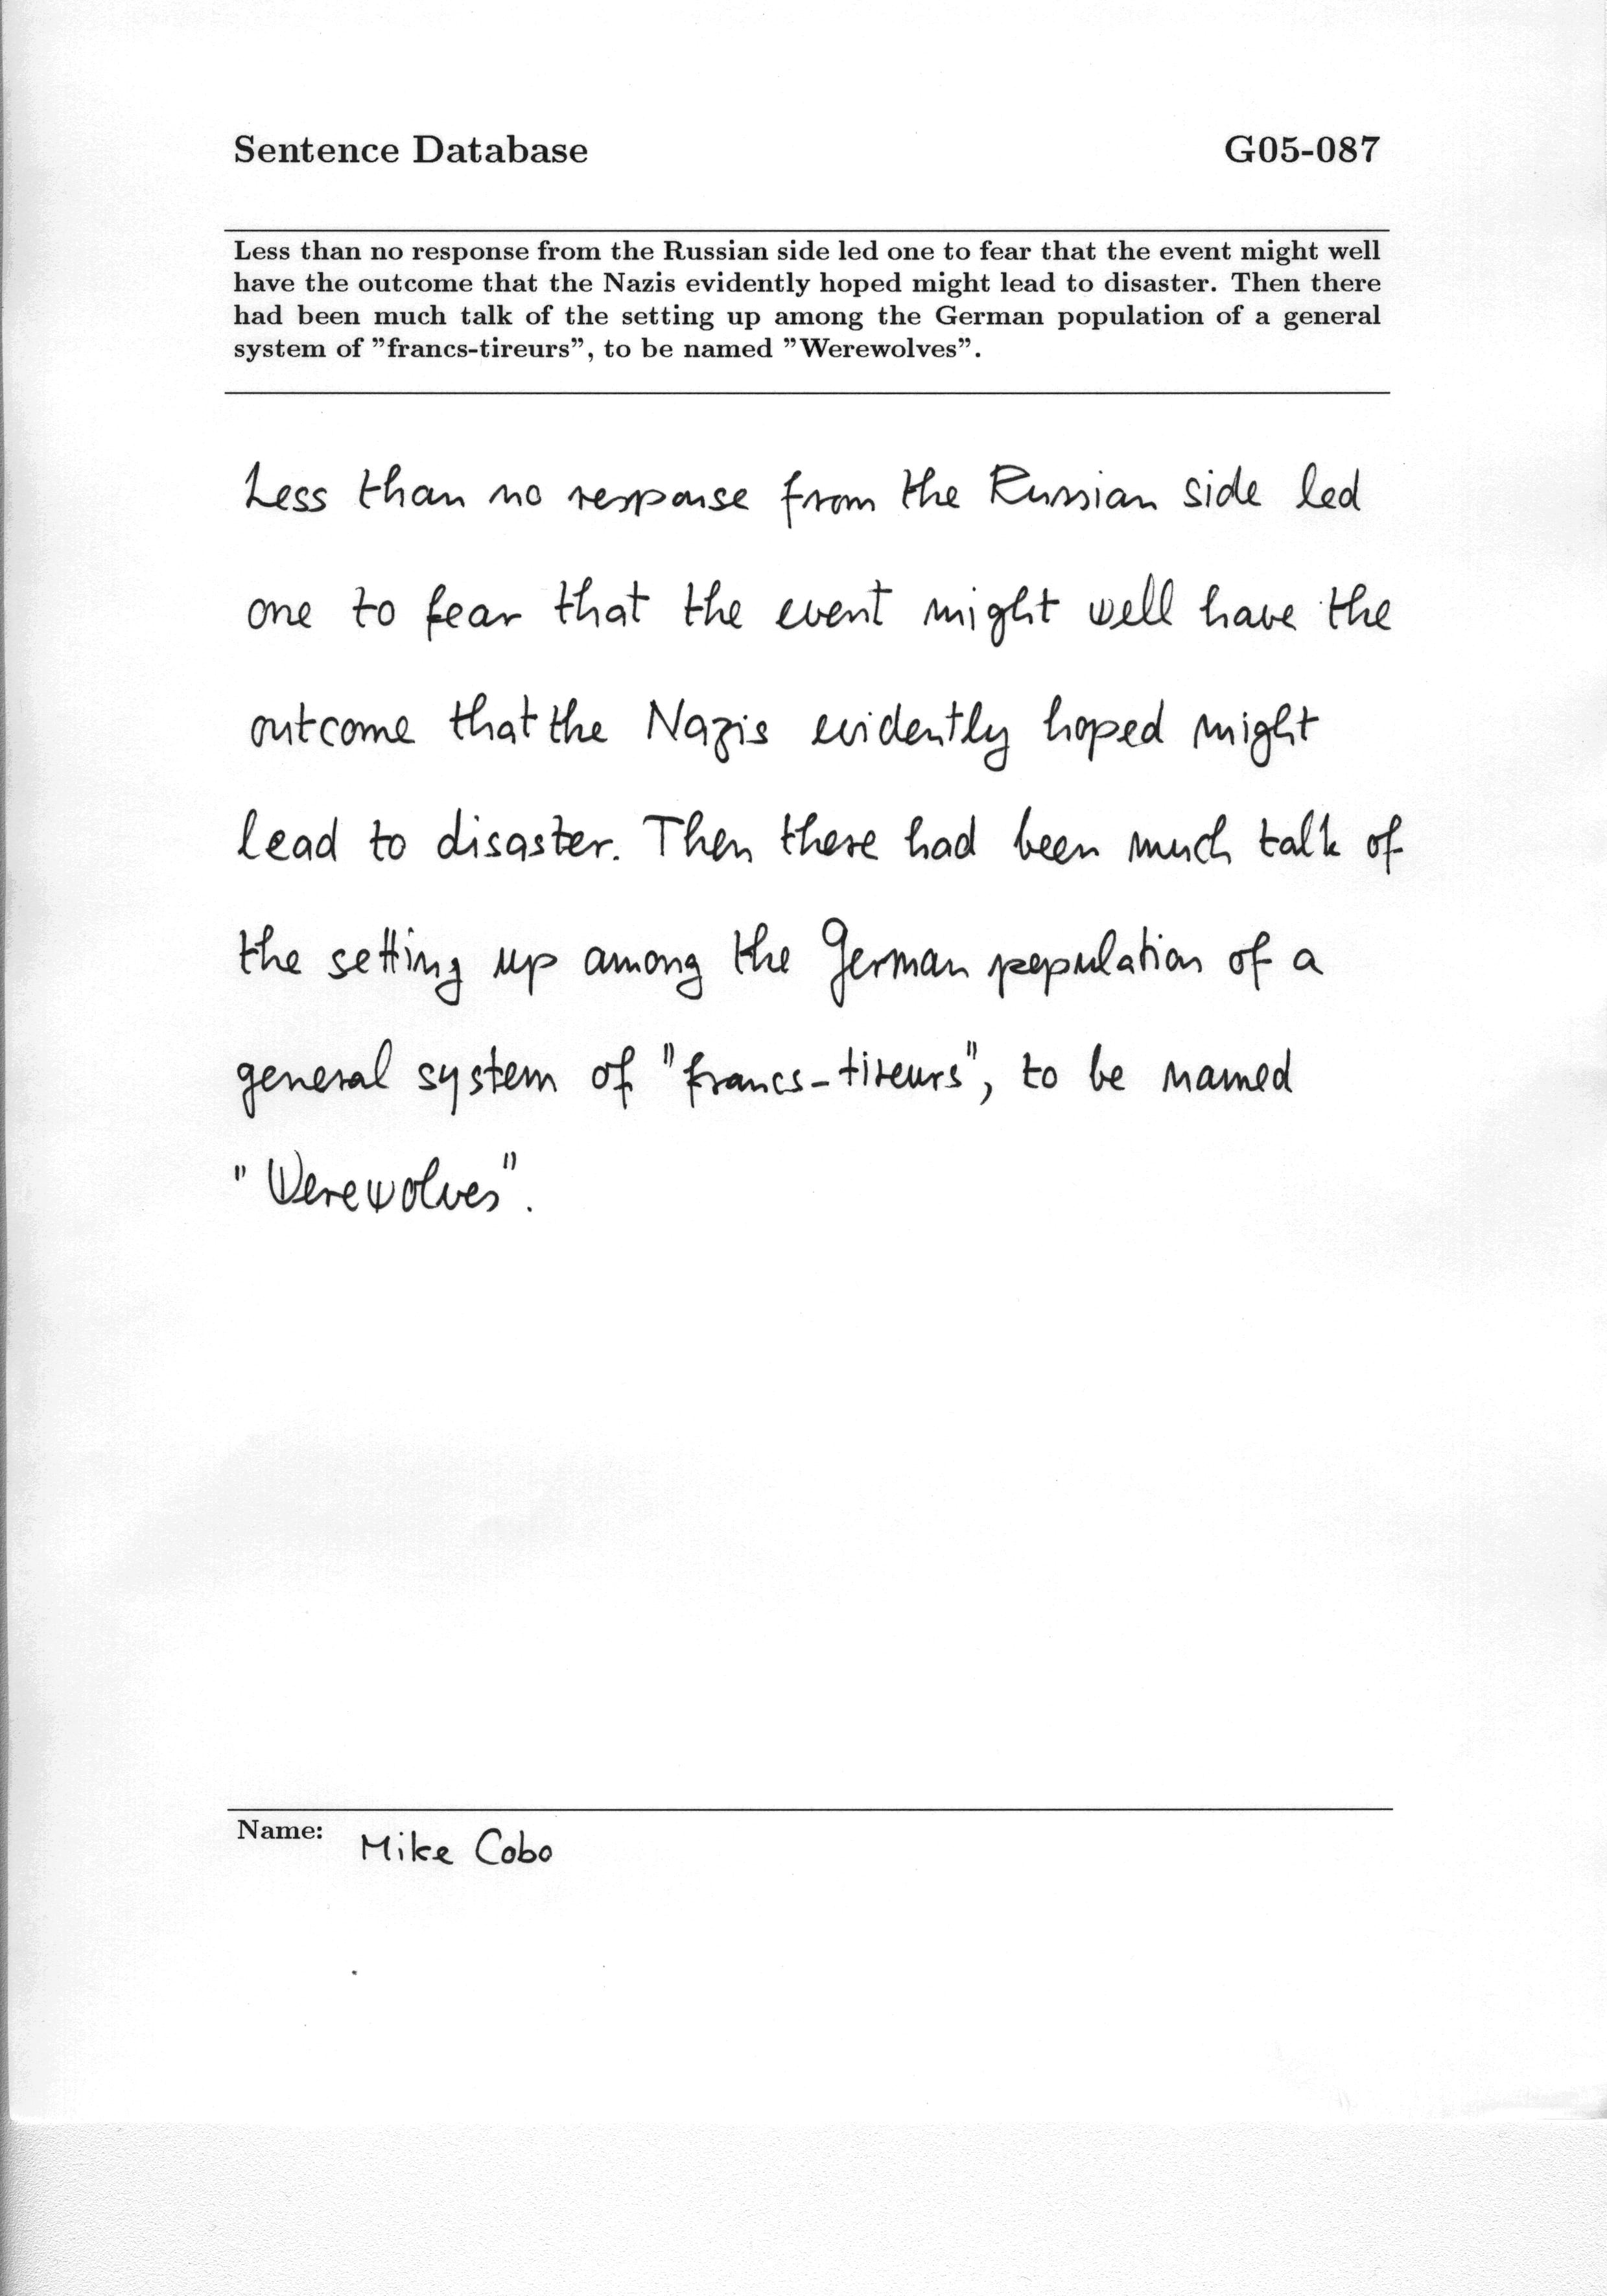 Sentence Database G05-087
Less than no response from the Russian side led one to fear that the event might well
have the outcome that the Nazis evidently hoped might lead to disaster. Then there
had been much talk of the setting up among the German population of a general
system of ”francs-tireurs”, to be named ”Werewolves”.
Less than no response from the Russian side led
one to fear that the event might well have the
outcome that the Nazis evidently hoped might
lead to disaster. Then there had been much talk of
the setting up among the German population of a
general system of "francs-tireurs", to be named
"Werewolves".
Name: Mike Cobo